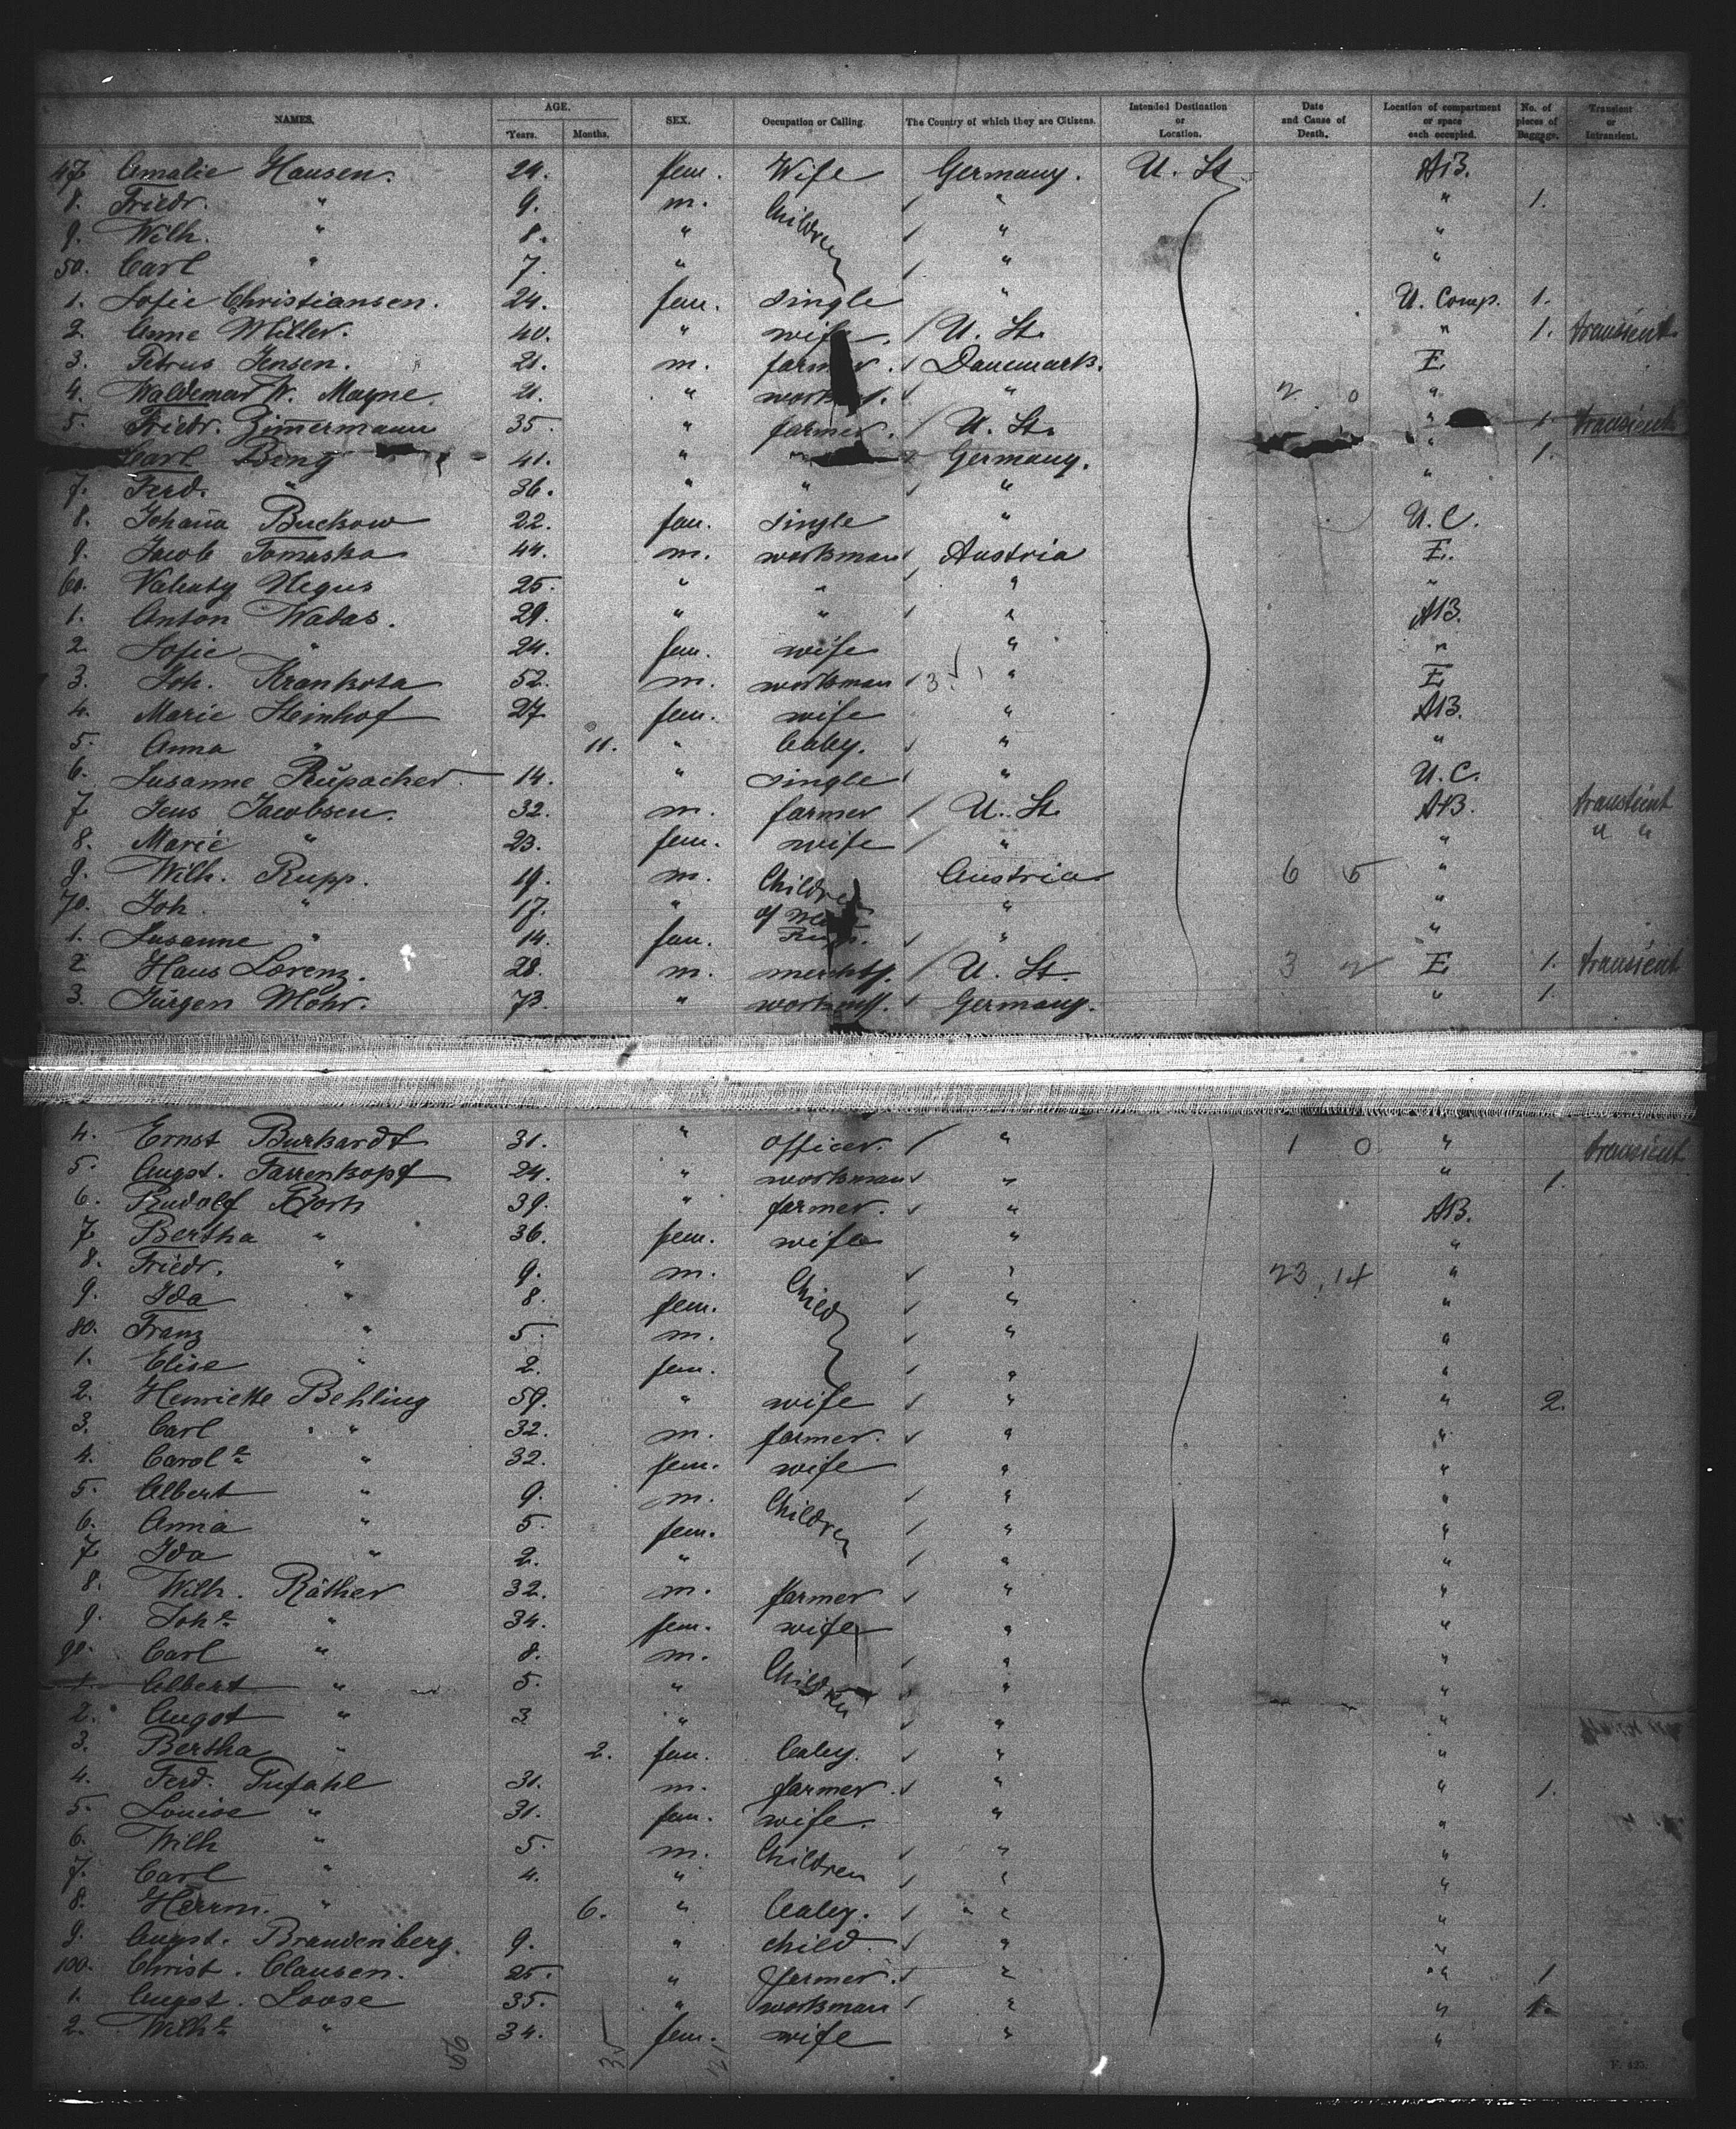 NAMES. AGE. Years. Months. SEX. Occupation or Calling. The Country of which they are Citizens. Intended Destination or Location. Date and Cause of Death. Location of compartment or space each occupied. No. of pieces of Baggage. Transient or Intransient.
47 Amalie Hansen. 24. fem. Wife Germany. U. St. AB.
8. Friedr. " 9. m. Children " " 1.
9. Wilh. " 8. " " "
50. Carl " 7. " " "
1. Sofie Christiansen. 24. fem. single " U. Comp. 1.
2. Anne Miller. 40. " wife. U. St. " 1. transient
3. Petrus Jensen. 21. m. farmer. Danemark. E.
4. Waldemar W. Mayne. 21. " " 2 0 "
5. Friedr. Zimmermann 35. " farmer. U. St. " 1. transient
Carl 41. " " Germany. " 1.
7. Ferd. " 36. " " " "
8. Johanna Buckow 22. fem. single " U. C.
9. Jacob Tomaska 44. m. workman Austria E.
60. Valenty Negus 25. " " " "
1. Anton Wadas. 29. " " " AB.
2. Sofie " 24. fem. wife " "
3. Joh. Krankota 52. m. workman " E
4. Marie Steinhof 27 fem. wife " AB.
5. Anna " 11. " baby. " "
6. Susanne 14. " single " U.C.
7 Jens Jacobsen. 32. m. farmer U. St. AB. transient
8. Marie " 23. fem. wife " " " "
9. Wilh. Rupp. 19. m. Children Austria 6 5 "
70. Joh. " 17. " of " "
1. Susanne " 14. fem. " "
2 Hans Lorenz. 28. m. U. St. 3 2 E 1. transient
3. Jürgen Mohr. 73. " Germany. " 1.
4. Ernst Burkardt 31. " officer. " 1 0 " transient
5. Augst. Farrenkopf 24. " workman " " 1.
6. Rudolf 39. " farmer. " AB.
7 Bertha " 36. fem. wife " "
8. Friedr. " 9. m. Child " 23, 14 "
9. Ida " 8. fem. " "
80. Franz " 5. m. " "
1. Elise " 2. fem. " "
2. Henriette Behling 59. " wife " " 2.
3. Carl " 32. m. farmer. " "
4. Carol.e " 32. fem. wife " "
5. Albert " 9. m. Children " "
6. Anna " 5. fem. " "
7 Ida " 2. " " "
8. Wilh. Räther 32. m. farmer " "
9. Joh.e " 34. fem. wife " "
90. Carl " 8. m. Children " "
1. Albert " 5. " " "
2. Augst " 3 " " "
3. Bertha " 2. fem. baby. " "
4. Ferd. Tufahl 31. m. farmer. " " 1.
5. Louise " 31. fem. wife. " "
6. Wilh " 5. m. Children " "
7. Carl " 4. " " "
8. Herrm. " 6. " baby. " "
9. Augst. Brandenberg. 9. " child. " "
100. Christ. Clausen. 25. " farmer. " " 1
1. Augst. Loose 35. " workman " " 1.
2. Wilh.e " 34. fem. wife " "
F. 425.